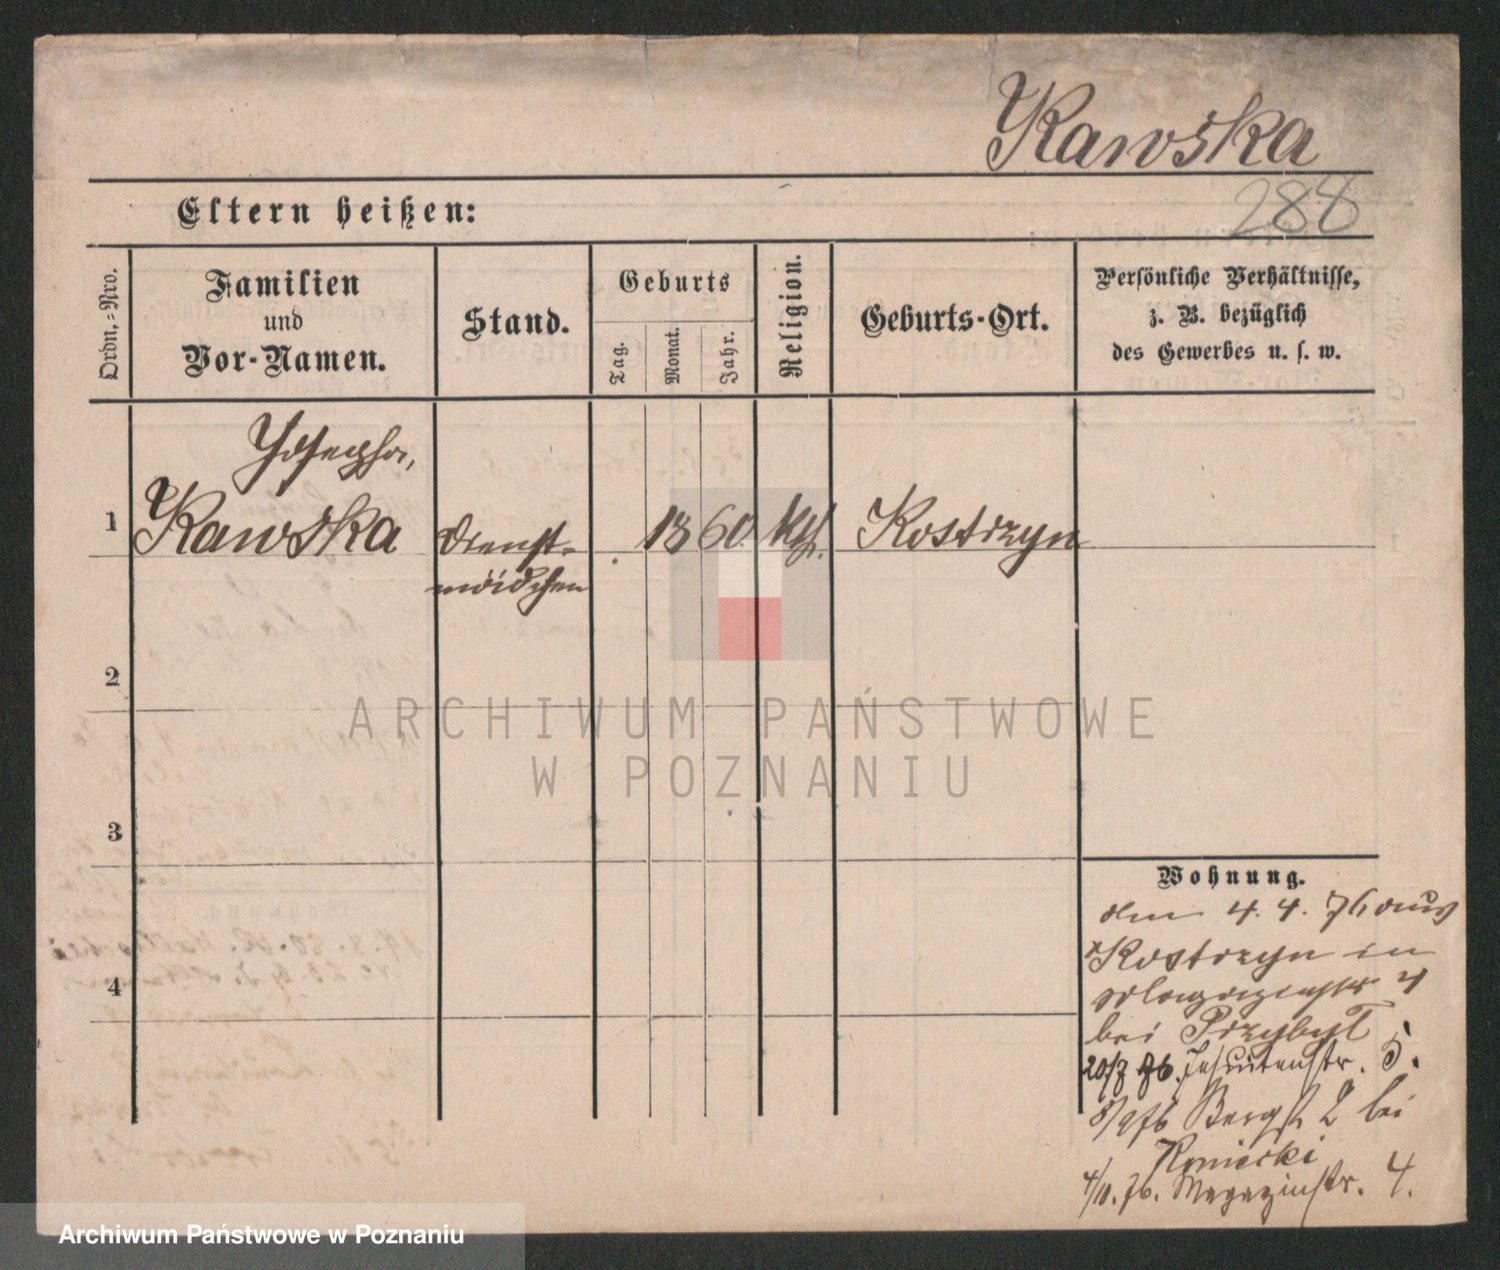 Kawska
288
Eltern heißen:
Ordn.-Nro.
Familien
und
Vor-Namen.
Stand.
Geburts
Tag.
Monat.
Jahr.
Religion.
Geburts-Ort.
Persönliche Verhältnisse,
z. B. bezüglich
des Gewerbes u. s. w.
Josepha,
1 Kawska Dienst- 1860 kth. Kostrzyn
mädchen
2
ARCHIWUM PAŃSTWOWE
W POZNANIU
3
Wohnung.
den 4. 4. 76 aus
Kostrzyn in
Magazinstr 4
4
bei Przybyl
20/7 76. Jesuitenstr. 5.
5/9 76 Bergst 2 bei
Koniecki
4/11. 76. Magazinstr. 4.
Archiwum Państwowe w Poznaniu